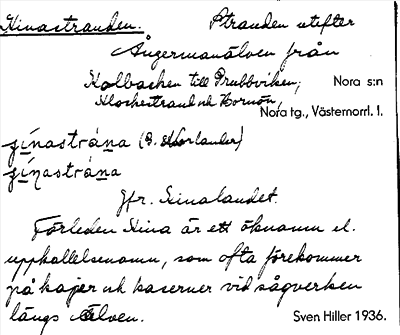 Kinastranden. Stranden utefter
Ångermanälven från
Kolbacken till Prubbviken, Nora s:n
Klockestrand och Hornön, Nora tg., Västernorrl. l.
(B. Norlander)
Jfr. Kinalandet.
Förleden Kina är ett öknamn el.
uppkallelsenamn, som ofta förekommer
på kajer och kaserner vid sågverken
längs älven. Sven Hiller 1936.